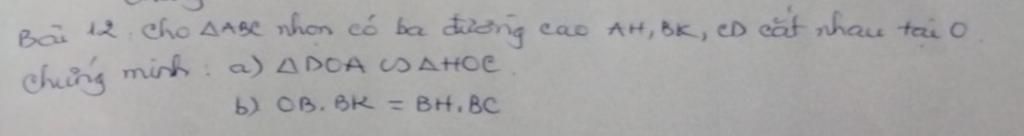 Bài 12. Cho △ABC nhọn có ba đường cao AH, BK, CD cắt nhau tại O.
Chứng minh: a) △DOA ∽ △HOC
b) OB.BK = BH.BC